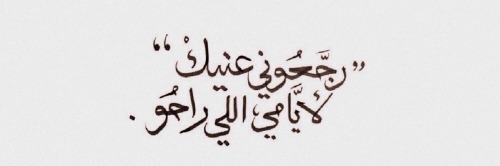 ” رجَّعُوني عنيكْ “
لأيَّامي اللي راحُو .